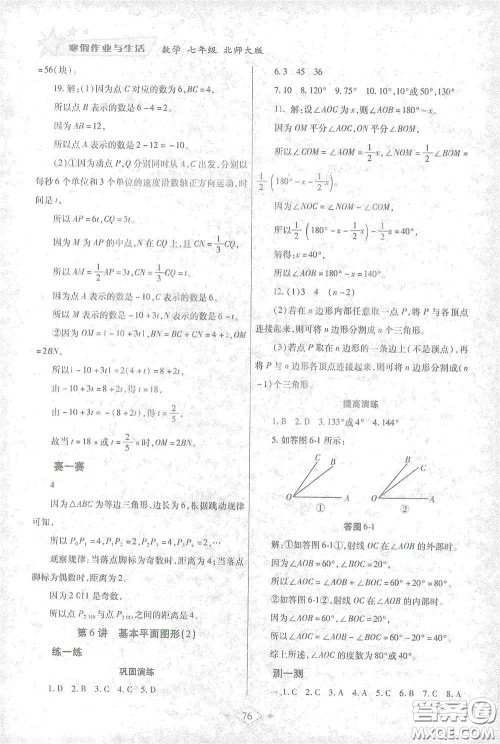 寒假作业与生活 数学 七年级 北师大版
=56(块).
19. 解:(1)因为点 C 对应的数为 6,BC=4,
所以点 B 表示的数是 6-4=2.
因为 AB=12,
所以点 A 表示的数是 2-12=-10.
(2)①因为动点 P,Q 分别同时从 A,C 出发,分别以
每秒 6 个单位和 3 个单位的速度沿数轴正方向运动,时
间是 t,
所以 AP=6t,CQ=3t,
因为 M 为 AP 的中点,N 在 CQ 上,且 CN=1/3CQ,
所以 AM=1/2AP=3t,CN=1/3CQ=t.
因为点 A 表示的数是-10,C 表示的数是 6,
所以 M 表示的数是-10+3t,N 表示的数是 6+t.
②因为 OM=|-10+3t|,BN=BC+CN=4+t,
OM=2BN,
所以|-10+3t|=2(4+t)=8+2t,
由-10+3t=8+2t,得 t=18,
由-10+3t=-(8+2t),得 t=2/5,
故当 t=18 s 或 t=2/5 s 时,OM=2BN.
赛一赛
4
因为△ABC 为等边三角形,边长为 6,根据跳动规律
可知,
所以 P₀P₁=4,P₁P₂=2,P₂P₃=4,P₃P₄=2,…
观察规律:当落点脚标为奇数时,距离为 4;当落点
脚标为偶数时,距离为 2.
因为 2 011 是奇数,
所以点 P₂ ₀₁₀ 与点 P₂ ₀₁₁ 之间的距离是 4.
第 6 讲 基本平面图形(2)
练一练
巩固演练
1. D 2. A 3. C 4. C 5. D
6. 3 45 36
7. 10 8. 120° 9. 135° 10. 75°
11. 解:设∠AOC=x,则∠AOB=180°-x.
因为 OM 平分∠AOC,ON 平分∠AOB,
所以∠COM=∠AOM=1/2x,∠AON=∠BON=
1/2(180°-x).
因为∠NOC=∠NOA-∠AOC=1/2(180°-x)-x,
所以 1/2(180°-x)-x=1/2x-40°,
解得:x=40°.
12. (1)3 4 (n-2)
(2)在 n 边形内部任意取一点 P,将 P 与各顶点
连接起来,则可将 n 边形分割成 n 个三角形.
(3)若点 P 取在 n 边形的一条边上(不是顶点),再
将 P 与 n 边形各顶点连接起来,则可将 n 边形分割成(n
-1)个三角形.
提高演练
1. B 2. D 3. 64° 4. 144°
5. 如答图 6-1 所示:
O A
①
O A
②
答图 6-1
解:①如答图 6-1,射线 OC 在∠AOB 的外部时.
因为∠AOB=40°,∠BOC=20°,
所以∠AOC=∠AOB+∠BOC=60°;
②如答图 6-1,射线 OC 在∠AOB 的内部时.
因为∠AOB=40°,∠BOC=20°,
所以∠AOC=∠AOB-∠BOC=20°.
综上所述,∠AOC 的度数是 60°或 20°.
测一测
1. C 2. D 3. D 4. C 5. C 6. B 7. D 8. A
76